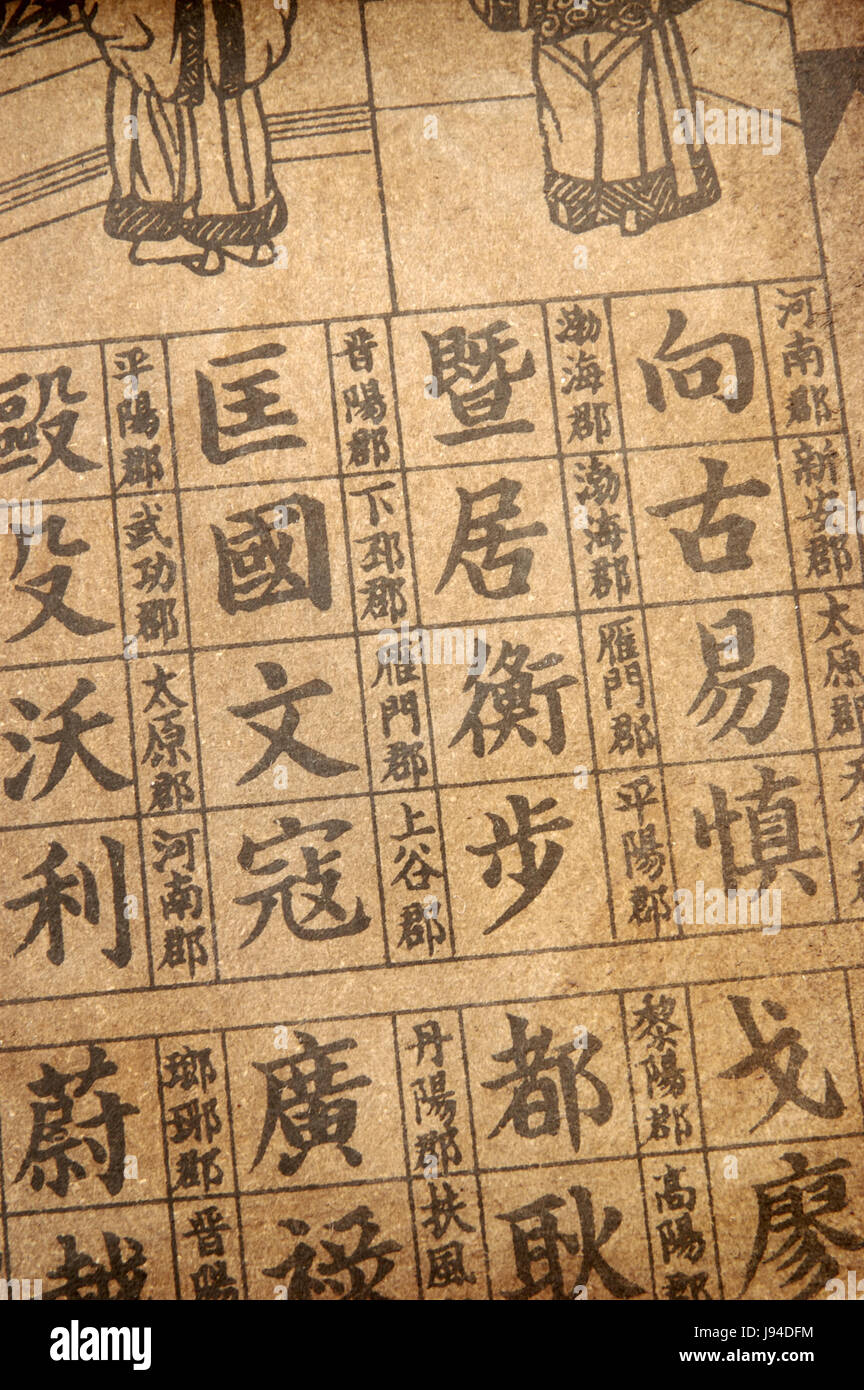 河南郡 新安郡 太原郡 天水郡
向古易慎
渤海郡 渤海郡 雁門郡 平陽郡
暨居衡步
晉陽郡 下邳郡 雁門郡 上谷郡
匡國文寇
平陽郡 武功郡 太原郡 河南郡
毆殳沃利
戈廖
黎陽郡 高陽郡
都耿
丹陽郡 扶風
廣祿
瑯琊郡 晉陽
蔚越
alamy
alamy
Image ID: J94DFM
www.alamy.com